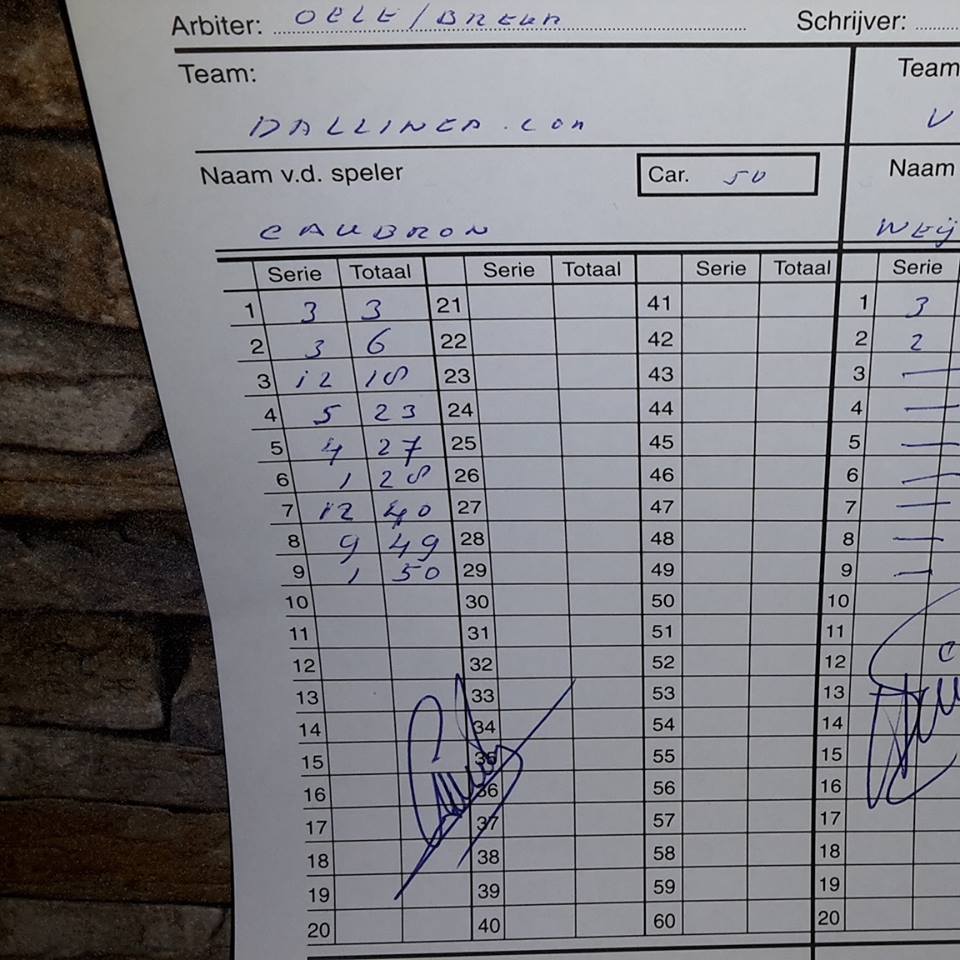 Arbiter: OELE/BREUR Schrijver:
Team: Team
DALLINGA.COM V
Naam v.d. speler Car. 50 Naam
CAUBRON WEIJ
Serie Totaal Serie Totaal Serie Totaal Serie
1 3 3 21 41 1 3
2 3 6 22 42 2 2
3 12 18 23 43 3 —
4 5 23 24 44 4 —
5 4 27 25 45 5 —
6 1 28 26 46 6 —
7 12 40 27 47 7 —
8 9 49 28 48 8 —
9 1 50 29 49 9 —
10 30 50 10
11 31 51 11
12 32 52 12
13 33 53 13
14 34 54 14
15 35 55 15
16 36 56 16
17 37 57 17
18 38 58 18
19 39 59 19
20 40 60 20